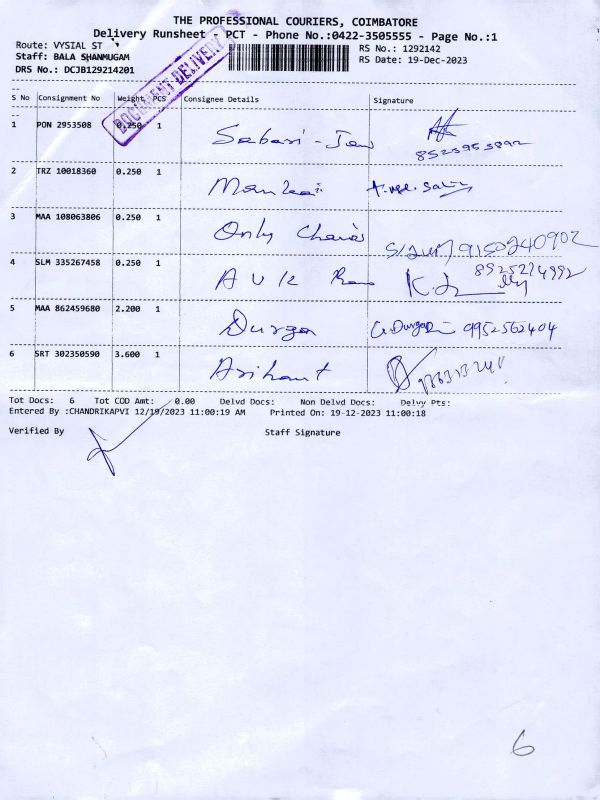 THE PROFESSIONAL COURIERS, COIMBATORE
Delivery Runsheet - PCT - Phone No.:0422-3505555 - Page No.:1
Route: VYSIAL ST
RS No.: 1292142
Staff: BALA SHANMUGAM
RS Date: 19-Dec-2023
DRS No.: DCJB129214201
DOCUMENT DELIVERY
S No Consignment No Weight PCS Consignee Details Signature
1 PON 2953508 0.250 1 Sabari -
2 TRZ 10018360 0.250 1
3 MAA 108063806 0.250 1 Only 9150240902
4 SLM 335267458 0.250 1 A V K
5 MAA 862459680 2.200 1 Durga G. Durga 9952562404
6 SRT 302350590 3.600 1 Arihant
Tot Docs: 6 Tot COD Amt: 0.00 Delvd Docs: Non Delvd Docs: Delvy Pts:
Entered By :CHANDRIKAPVI 12/19/2023 11:00:19 AM Printed On: 19-12-2023 11:00:18
Verified By Staff Signature
6